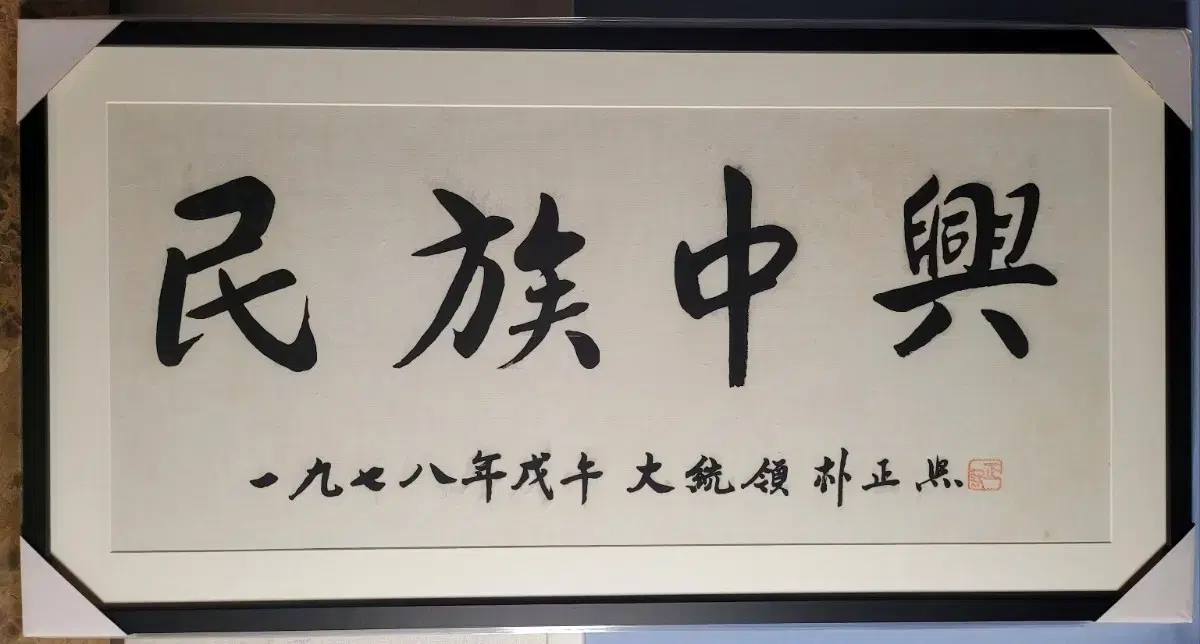 民族中興
一九七八年戊午 大統領 朴正熙